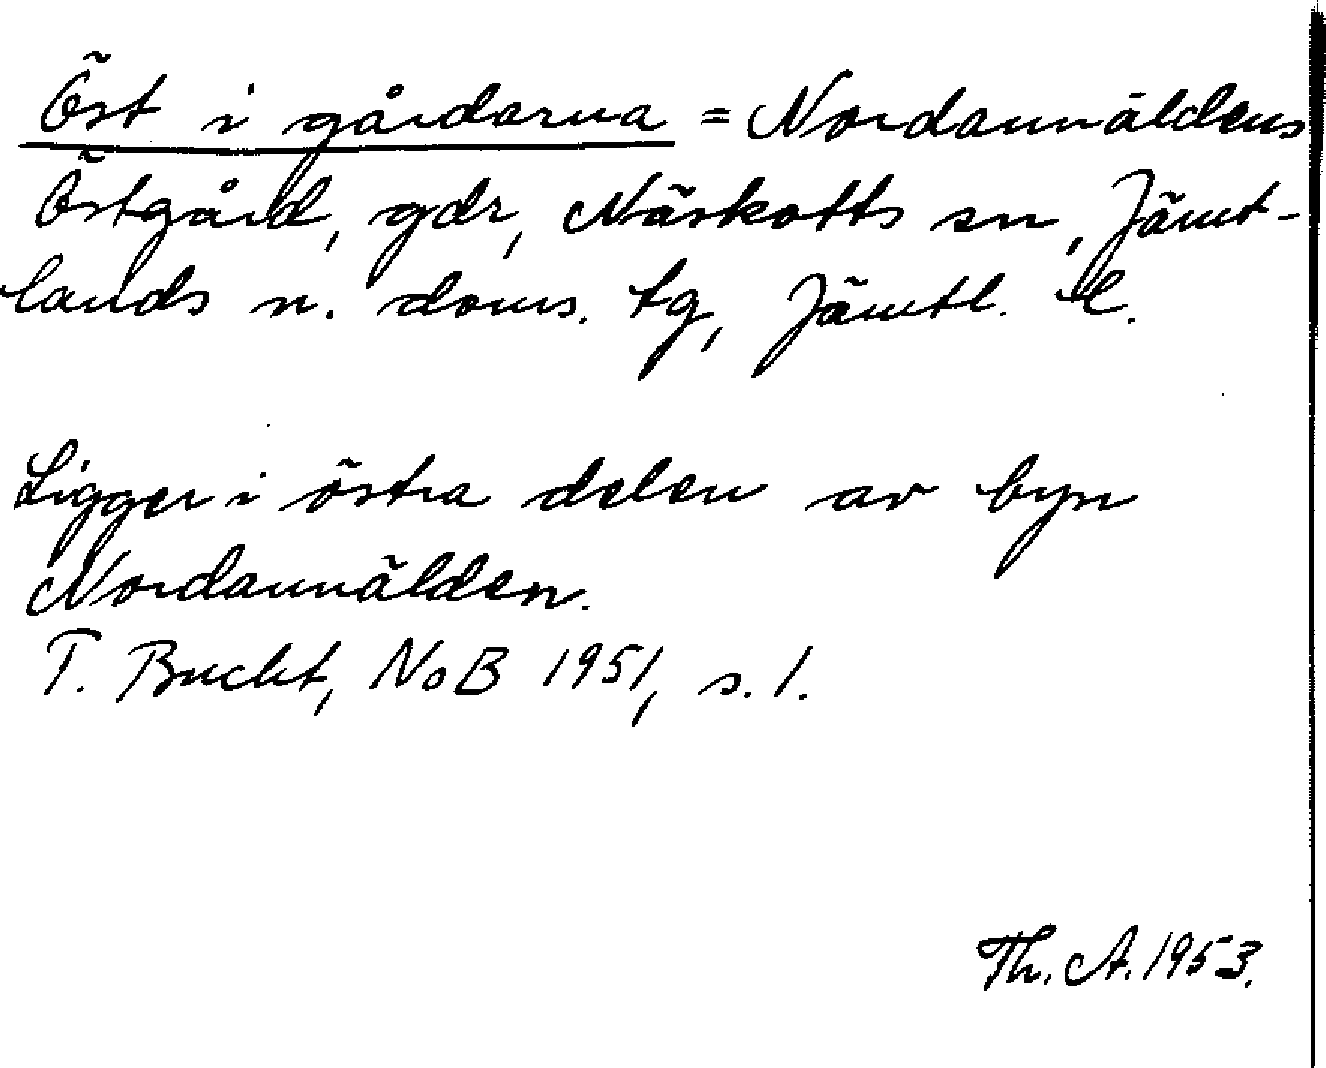 Öst i gårdarna = Nordannäldens
Östgård, gdr, Näskotts sn, Jämt-
lands n. doms. tg, Jämtl. l.
Ligger i östra delen av byn
Nordannälden.
T. Bucht, NoB 1951, s. 1.
Th. A. 1953.